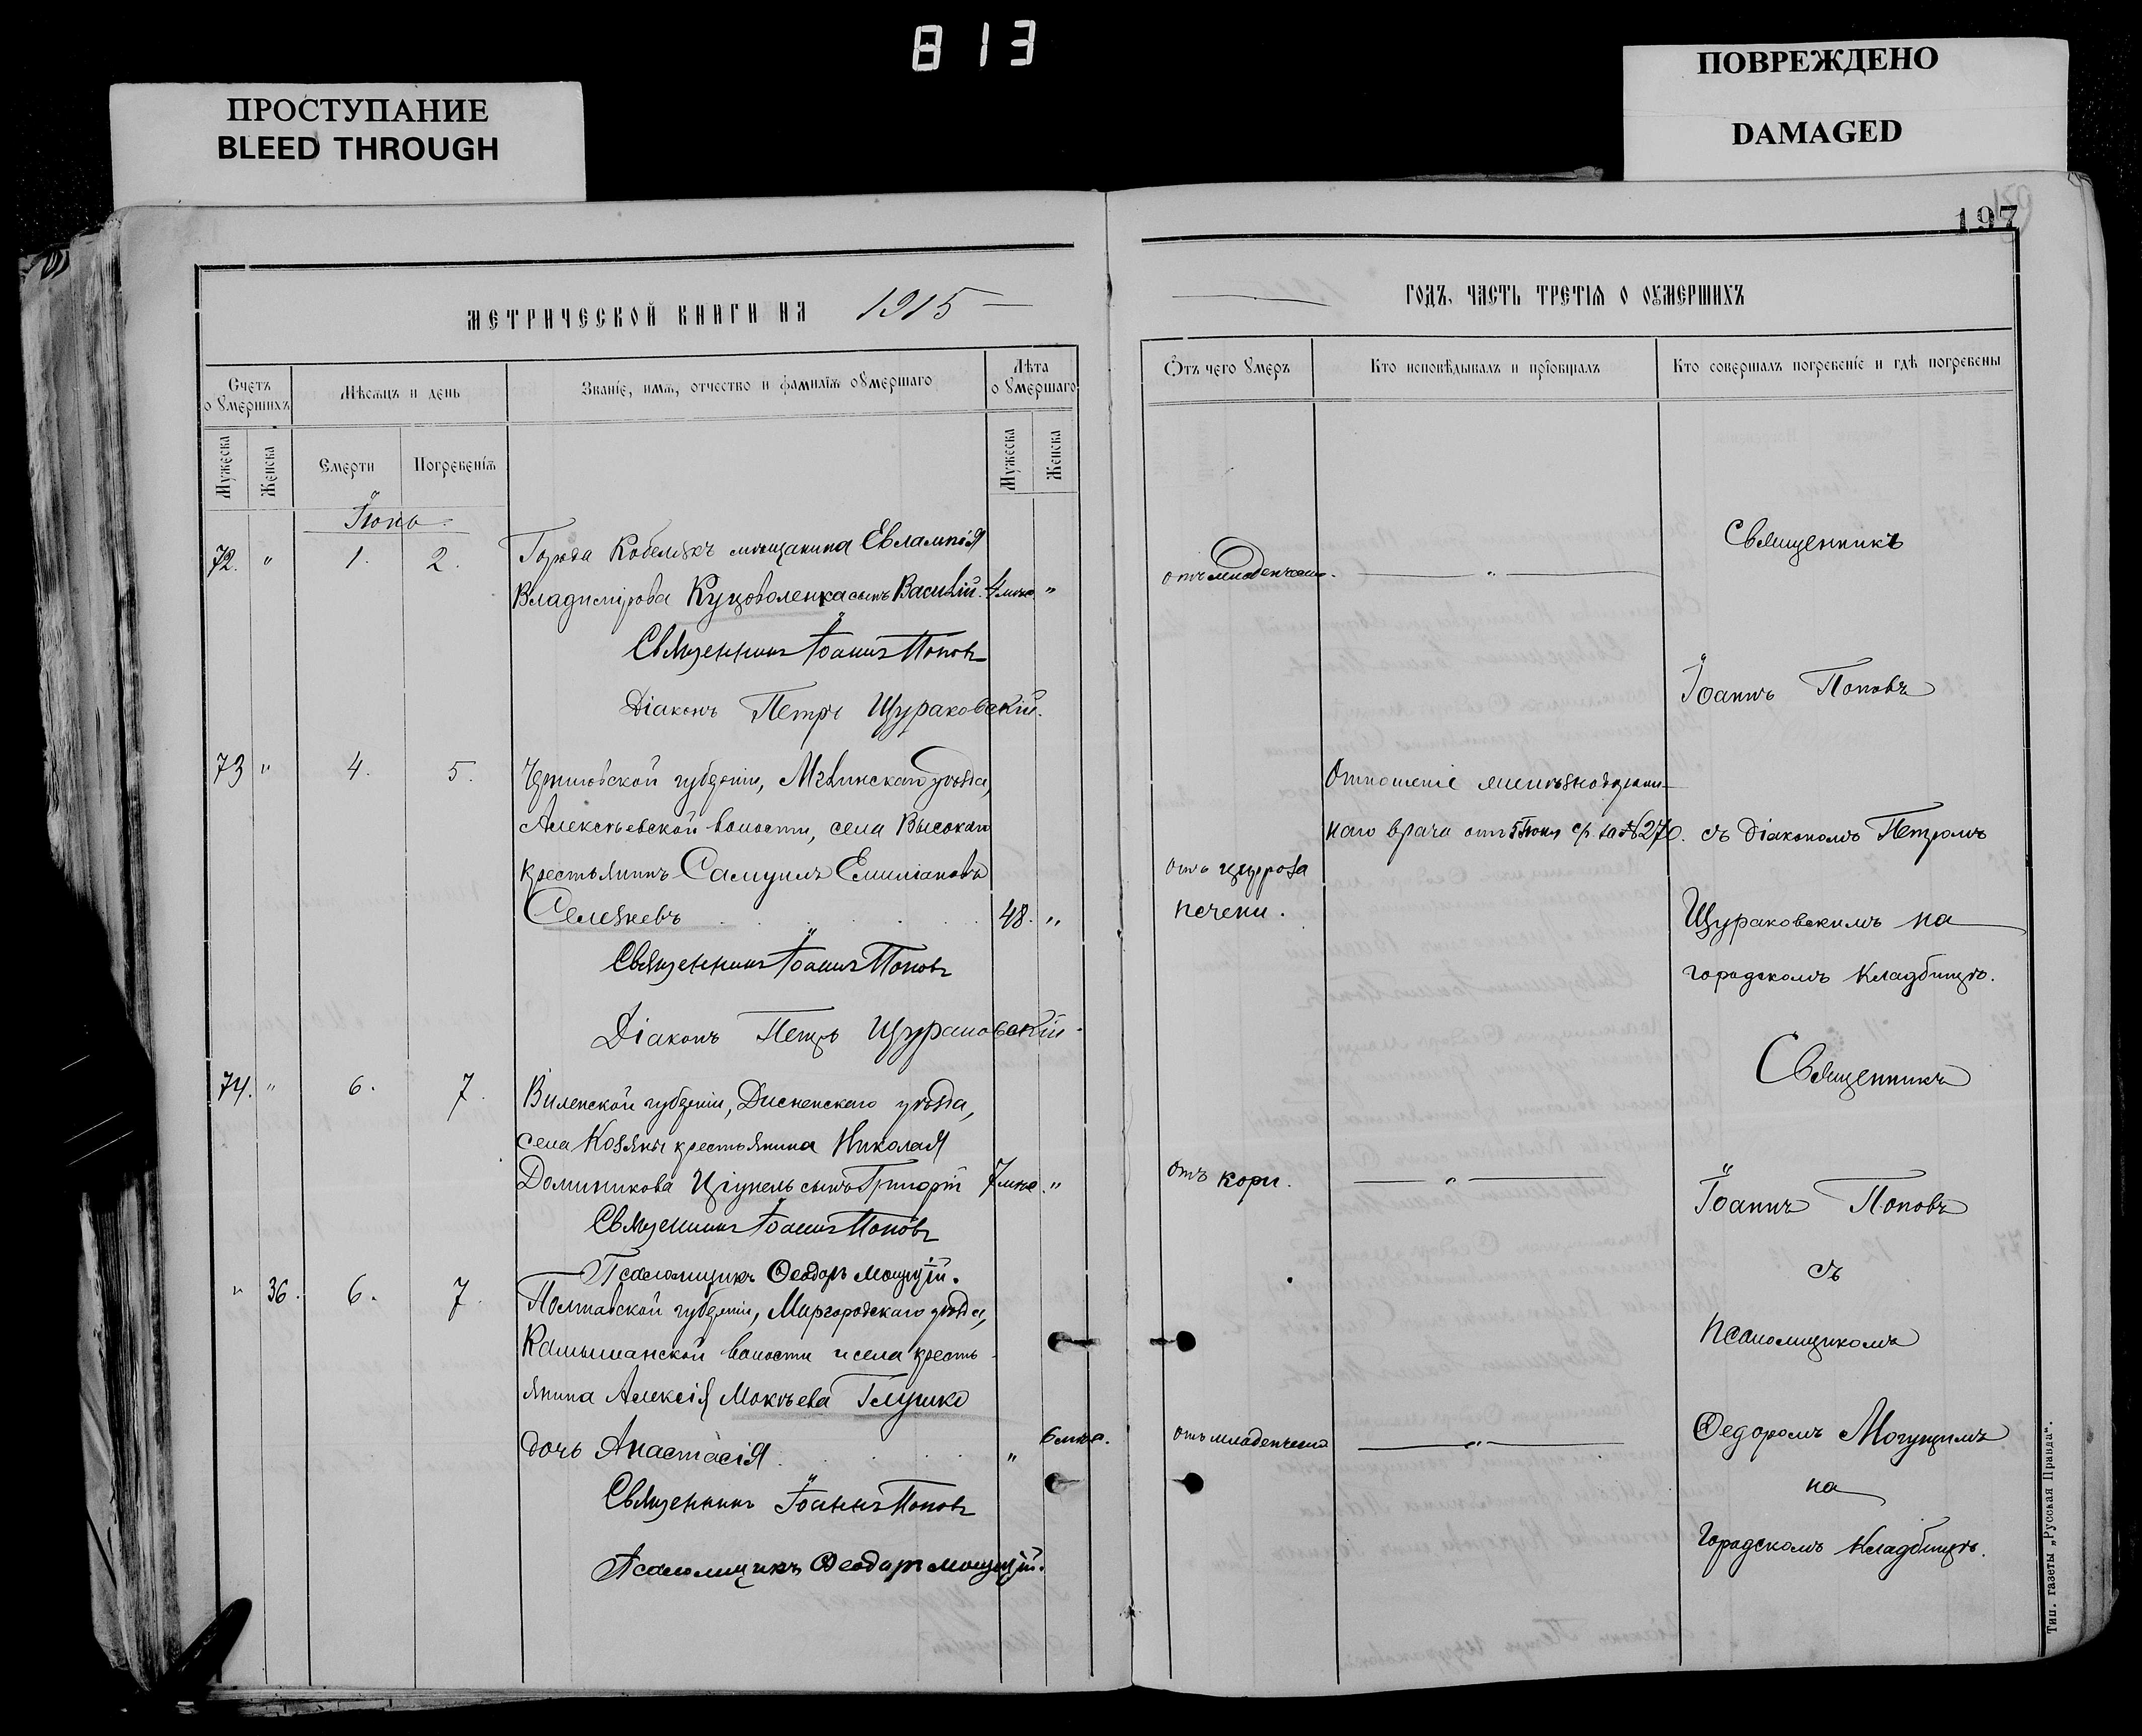 813
ПРОСТУПАНИЕ
BLEED THROUGH
ПОВРЕЖДЕНО
DAMAGED
197
МЕТРИЧЕСКОЙ КНИГИ НА 1915
ГОДЪ, ЧАСТЬ ТРЕТІЯ О ОУМЕРШИХЪ
Счетъ оумершихъ
Мѣсяцъ и день
Званіе, имя, отчество и фамилія оумершаго
Лѣта оумершаго
Отъ чего умеръ
Кто исповѣдывалъ и пріобщалъ
Кто совершалъ погребеніе и гдѣ погребены
Мужеска
Женска
Смерти
Погребенія
Мужеска
Женска
Іюнь
72. " 1. 2.
Города Кобелякъ мѣщанина Евлампія
Владимірова Куцоволенка сынъ Василій. 4 мѣс. "
отъ младенческ.
Священникъ Іоаннъ Поповъ
Діаконъ Петръ Щураковскій.
73 " 4. 5.
Черниговской губерніи, Мглинскаго уѣзда,
Алексѣевской волости, села Высокаго
крестьянинъ Самуилъ Емиліановъ
Селезневъ 48. "
отъ цирроза
печени.
Отношеніе
наго врача отъ 5 Іюня с/г. за № 270.
Священникъ Іоаннъ Поповъ
Діаконъ Петръ Щураковскій
74. " 6. 7.
Виленской губерніи, Дисненскаго уѣзда,
села Козяны крестьянина Николая
Доминикова Ціунель сынъ Григорій 7 мѣс. "
отъ кори.
Священникъ Іоаннъ Поповъ
Псаломщикъ Ѳеодоръ
" 36. 6. 7.
Полтавской губерніи, Миргородскаго уѣзда,
Камышанской волости и села кресть-
янина Алексія Мокѣева Глушко
дочь Анастасія " 6 мѣс.
отъ младенческ
Священникъ Іоаннъ Поповъ
Псаломщикъ Ѳеодоръ
Священникъ
Іоаннъ Поповъ
съ діакономъ Петромъ
Щураковскимъ на
городскомъ кладбищѣ.
Священникъ
Іоаннъ Поповъ
съ
псаломщикомъ
Ѳедоромъ
на
городскомъ кладбищѣ.
Тип. газеты „Русская Правда".